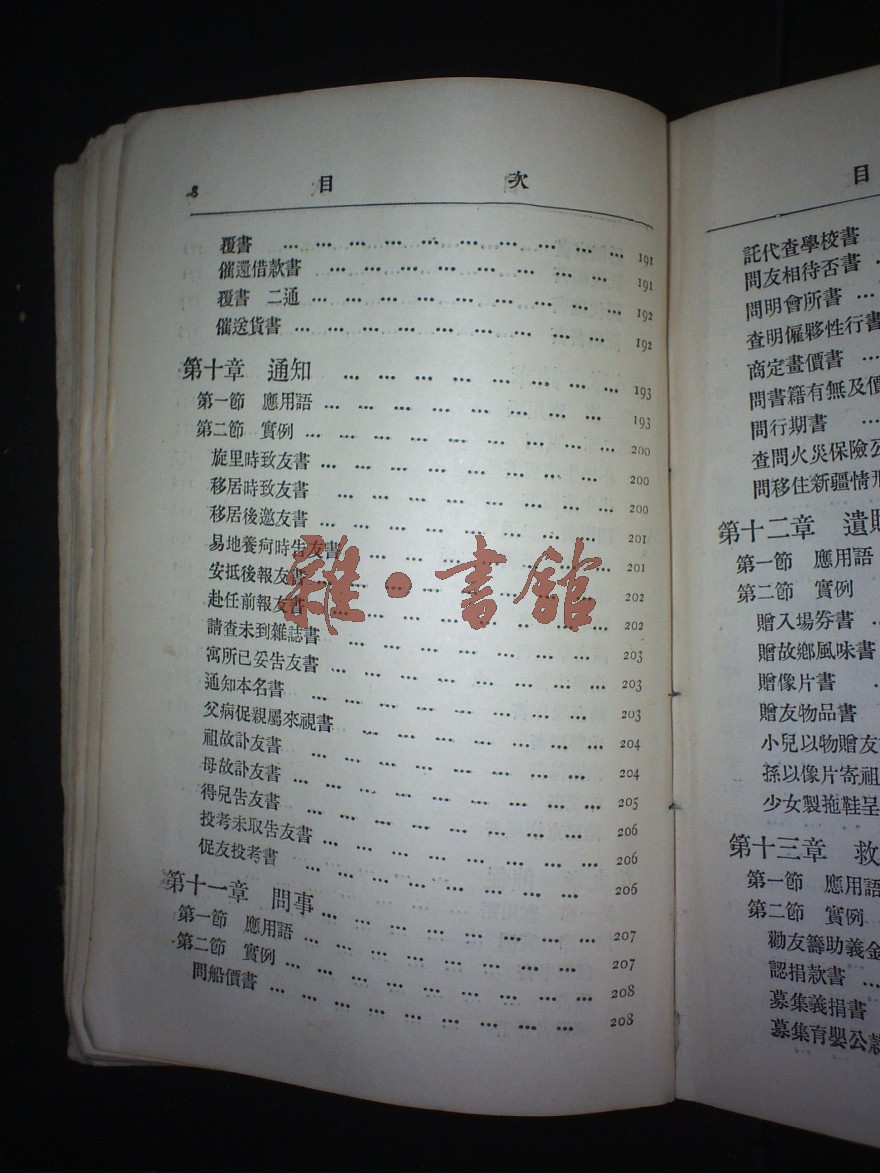 8 目 次
覆書 … … … … … … … … … 191
催還借款書 … … … … … … … … 191
覆書 二通 … … … … … … … … 192
催送貨書 … … … … … … … … … 192
第十章 通知 … … … … … … … … 193
第一節 應用語 … … … … … … … … … 193
第二節 實例 … … … … … … … … … 200
旋里時致友書 … … … … … … … … 200
移居時致友書 … … … … … … … … 200
移居後邀友書 … … … … … … … … 201
易地養疴時告友書 … … … … … … … 201
安抵後報友書 … … … … … … … … 202
赴任前報友書 … … … … … … … … 202
請查未到雜誌書 … … … … … … … … 203
寓所已妥告友書 … … … … … … … … 203
通知本名書 … … … … … … … … 203
父病促親屬來視書 … … … … … … … 204
祖故訃友書 … … … … … … … … 204
母故訃友書 … … … … … … … … 205
得兒告友書 … … … … … … … … 206
投考未取告友書 … … … … … … … … 206
促友投考書 … … … … … … … … 206
第十一章 問事 … … … … … … … … 207
第一節 應用語 … … … … … … … … 207
第二節 實例 … … … … … … … … 208
問船價書 … … … … … … … … 208
雜·書館
目
託代查學校書
問友相待否書
問明會所書 …
查明僱夥性行書
商定畫價書 …
問書籍有無及價
問行期書
查問火災保險公
問移住新疆情形
第十二章 遺贈
第一節 應用語
第二節 實例
贈入場券書 …
贈故鄉風味書
贈像片書 …
贈友物品書
小兒以物贈友
孫以像片寄祖
少女製拖鞋呈
第十三章 救
第一節 應用語
第二節 實例
勸友籌助義金
認捐款書 …
募集義捐書
募集育嬰公